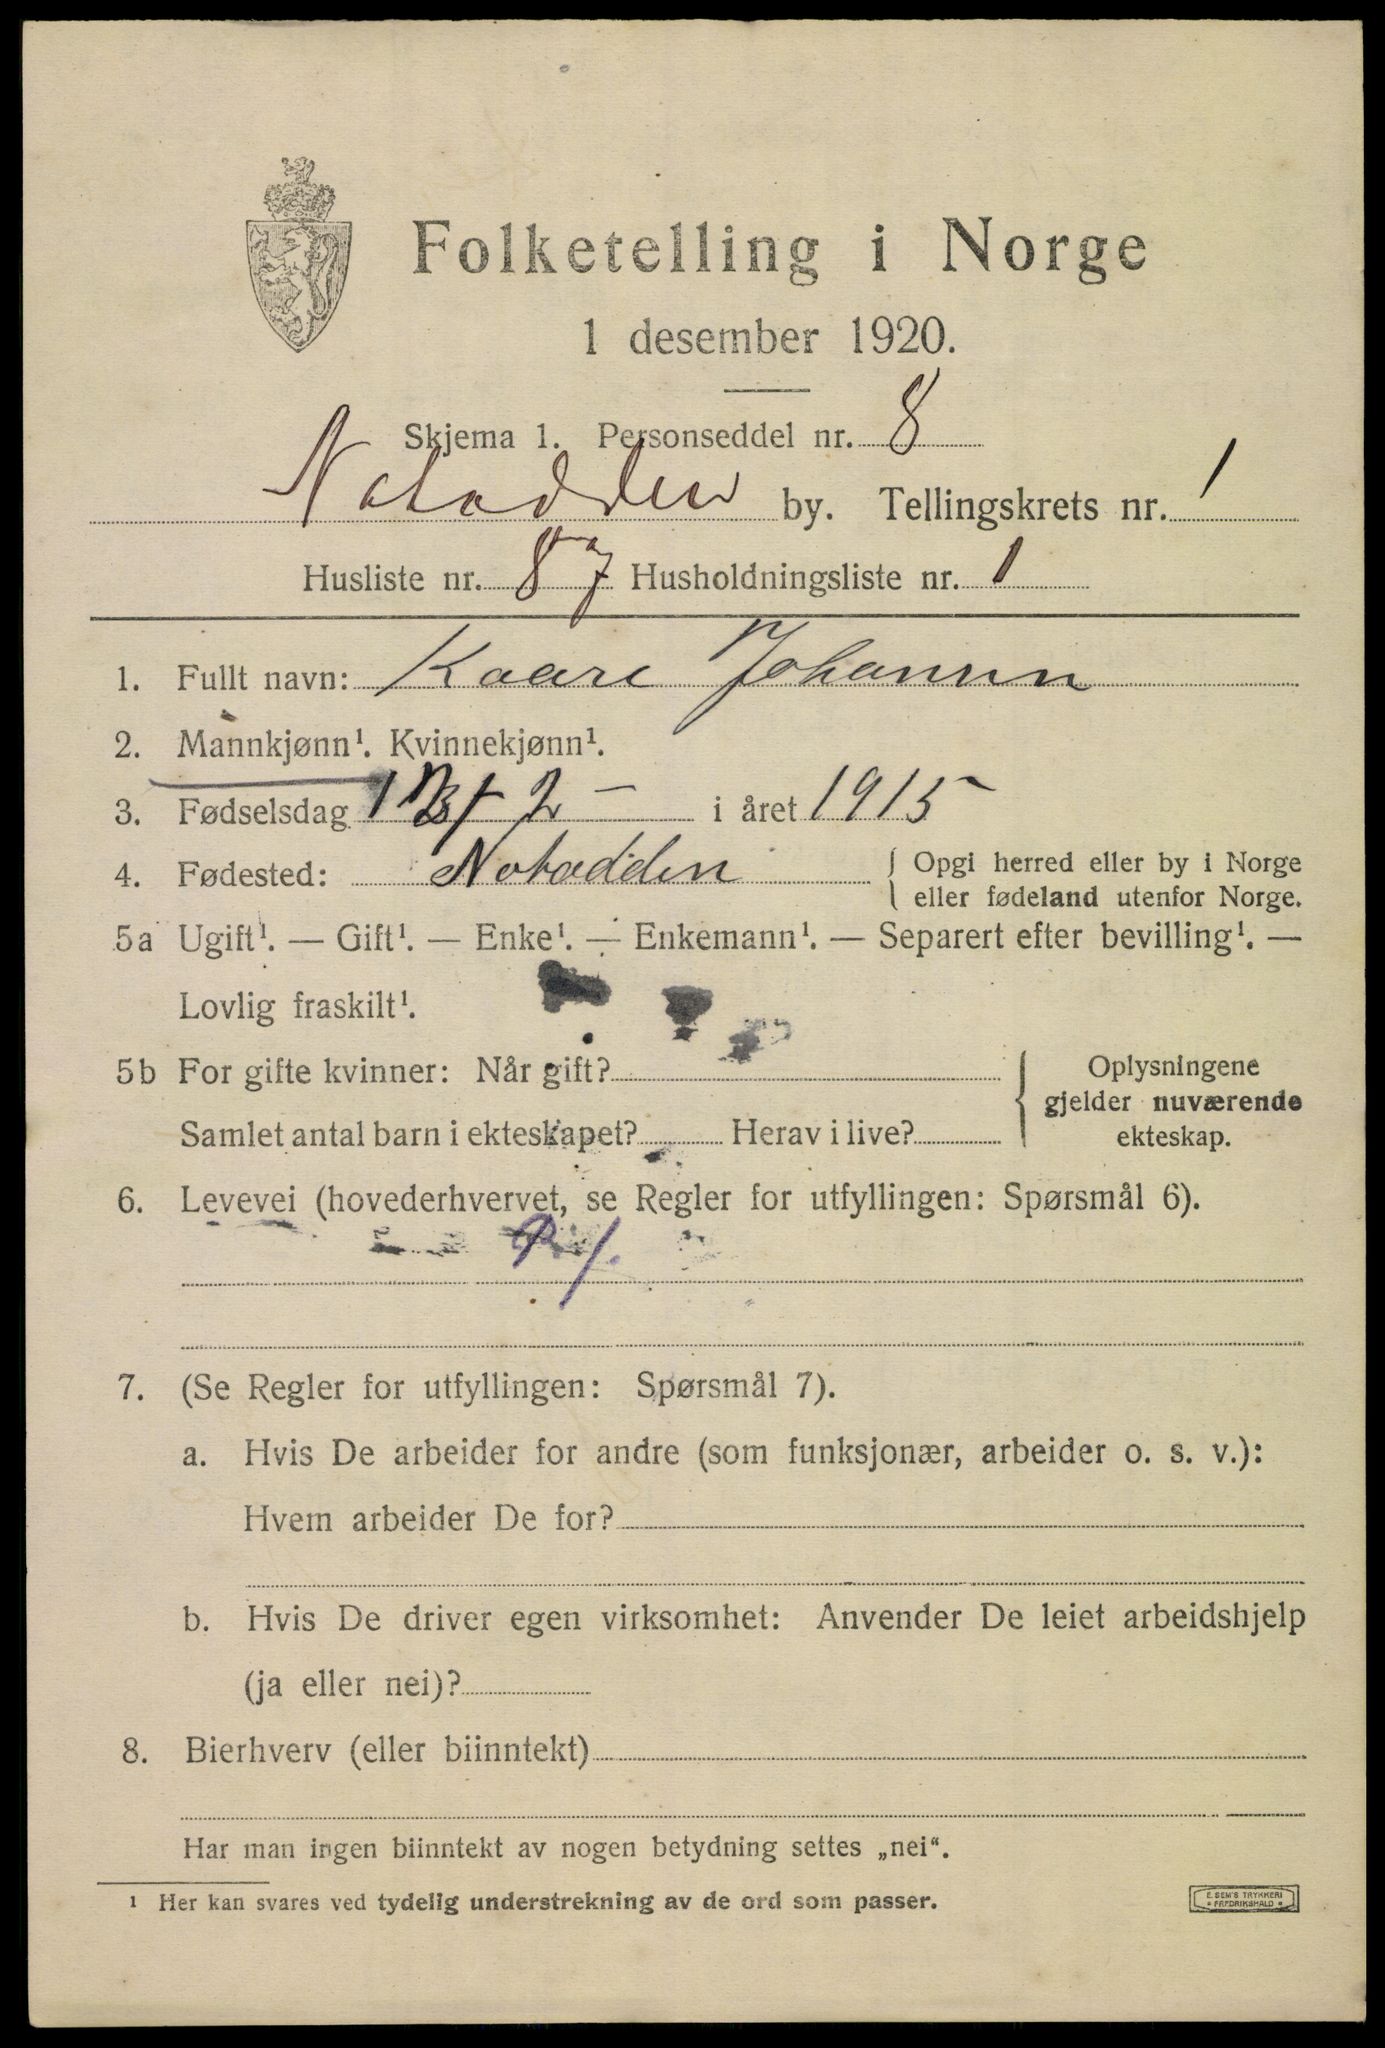 Folketelling i Norge
1 desember 1920.
Skjema 1. Personseddel nr. 8
Notodden by. Tellingskrets nr. 1
Husliste nr. 87 Husholdningsliste nr. 1
1. Fullt navn: Kaare Johansen
2. Mannkjønn¹. Kvinnekjønn¹.
3. Fødselsdag 2 – i året 1915
4. Fødested: Notodden { Opgi herred eller by i Norge
eller fødeland utenfor Norge.
5a Ugift¹. — Gift¹. — Enke¹. — Enkemann¹. — Separert efter bevilling¹. —
Lovlig fraskilt¹.
5b For gifte kvinner: Når gift? } Oplysningene
gjelder nuværende
ekteskap.
Samlet antal barn i ekteskapet? Herav i live?
6. Levevei (hovederhvervet, se Regler for utfyllingen: Spørsmål 6).
7. (Se Regler for utfyllingen: Spørsmål 7).
a. Hvis De arbeider for andre (som funksjonær, arbeider o. s. v.):
Hvem arbeider De for?
b. Hvis De driver egen virksomhet: Anvender De leiet arbeidshjelp
(ja eller nei)?
8. Bierhverv (eller biinntekt)
Har man ingen biinntekt av nogen betydning settes „nei“.
¹ Her kan svares ved tydelig understrekning av de ord som passer.
E. SEM'S TRYKKERI
FREDRIKSHALD